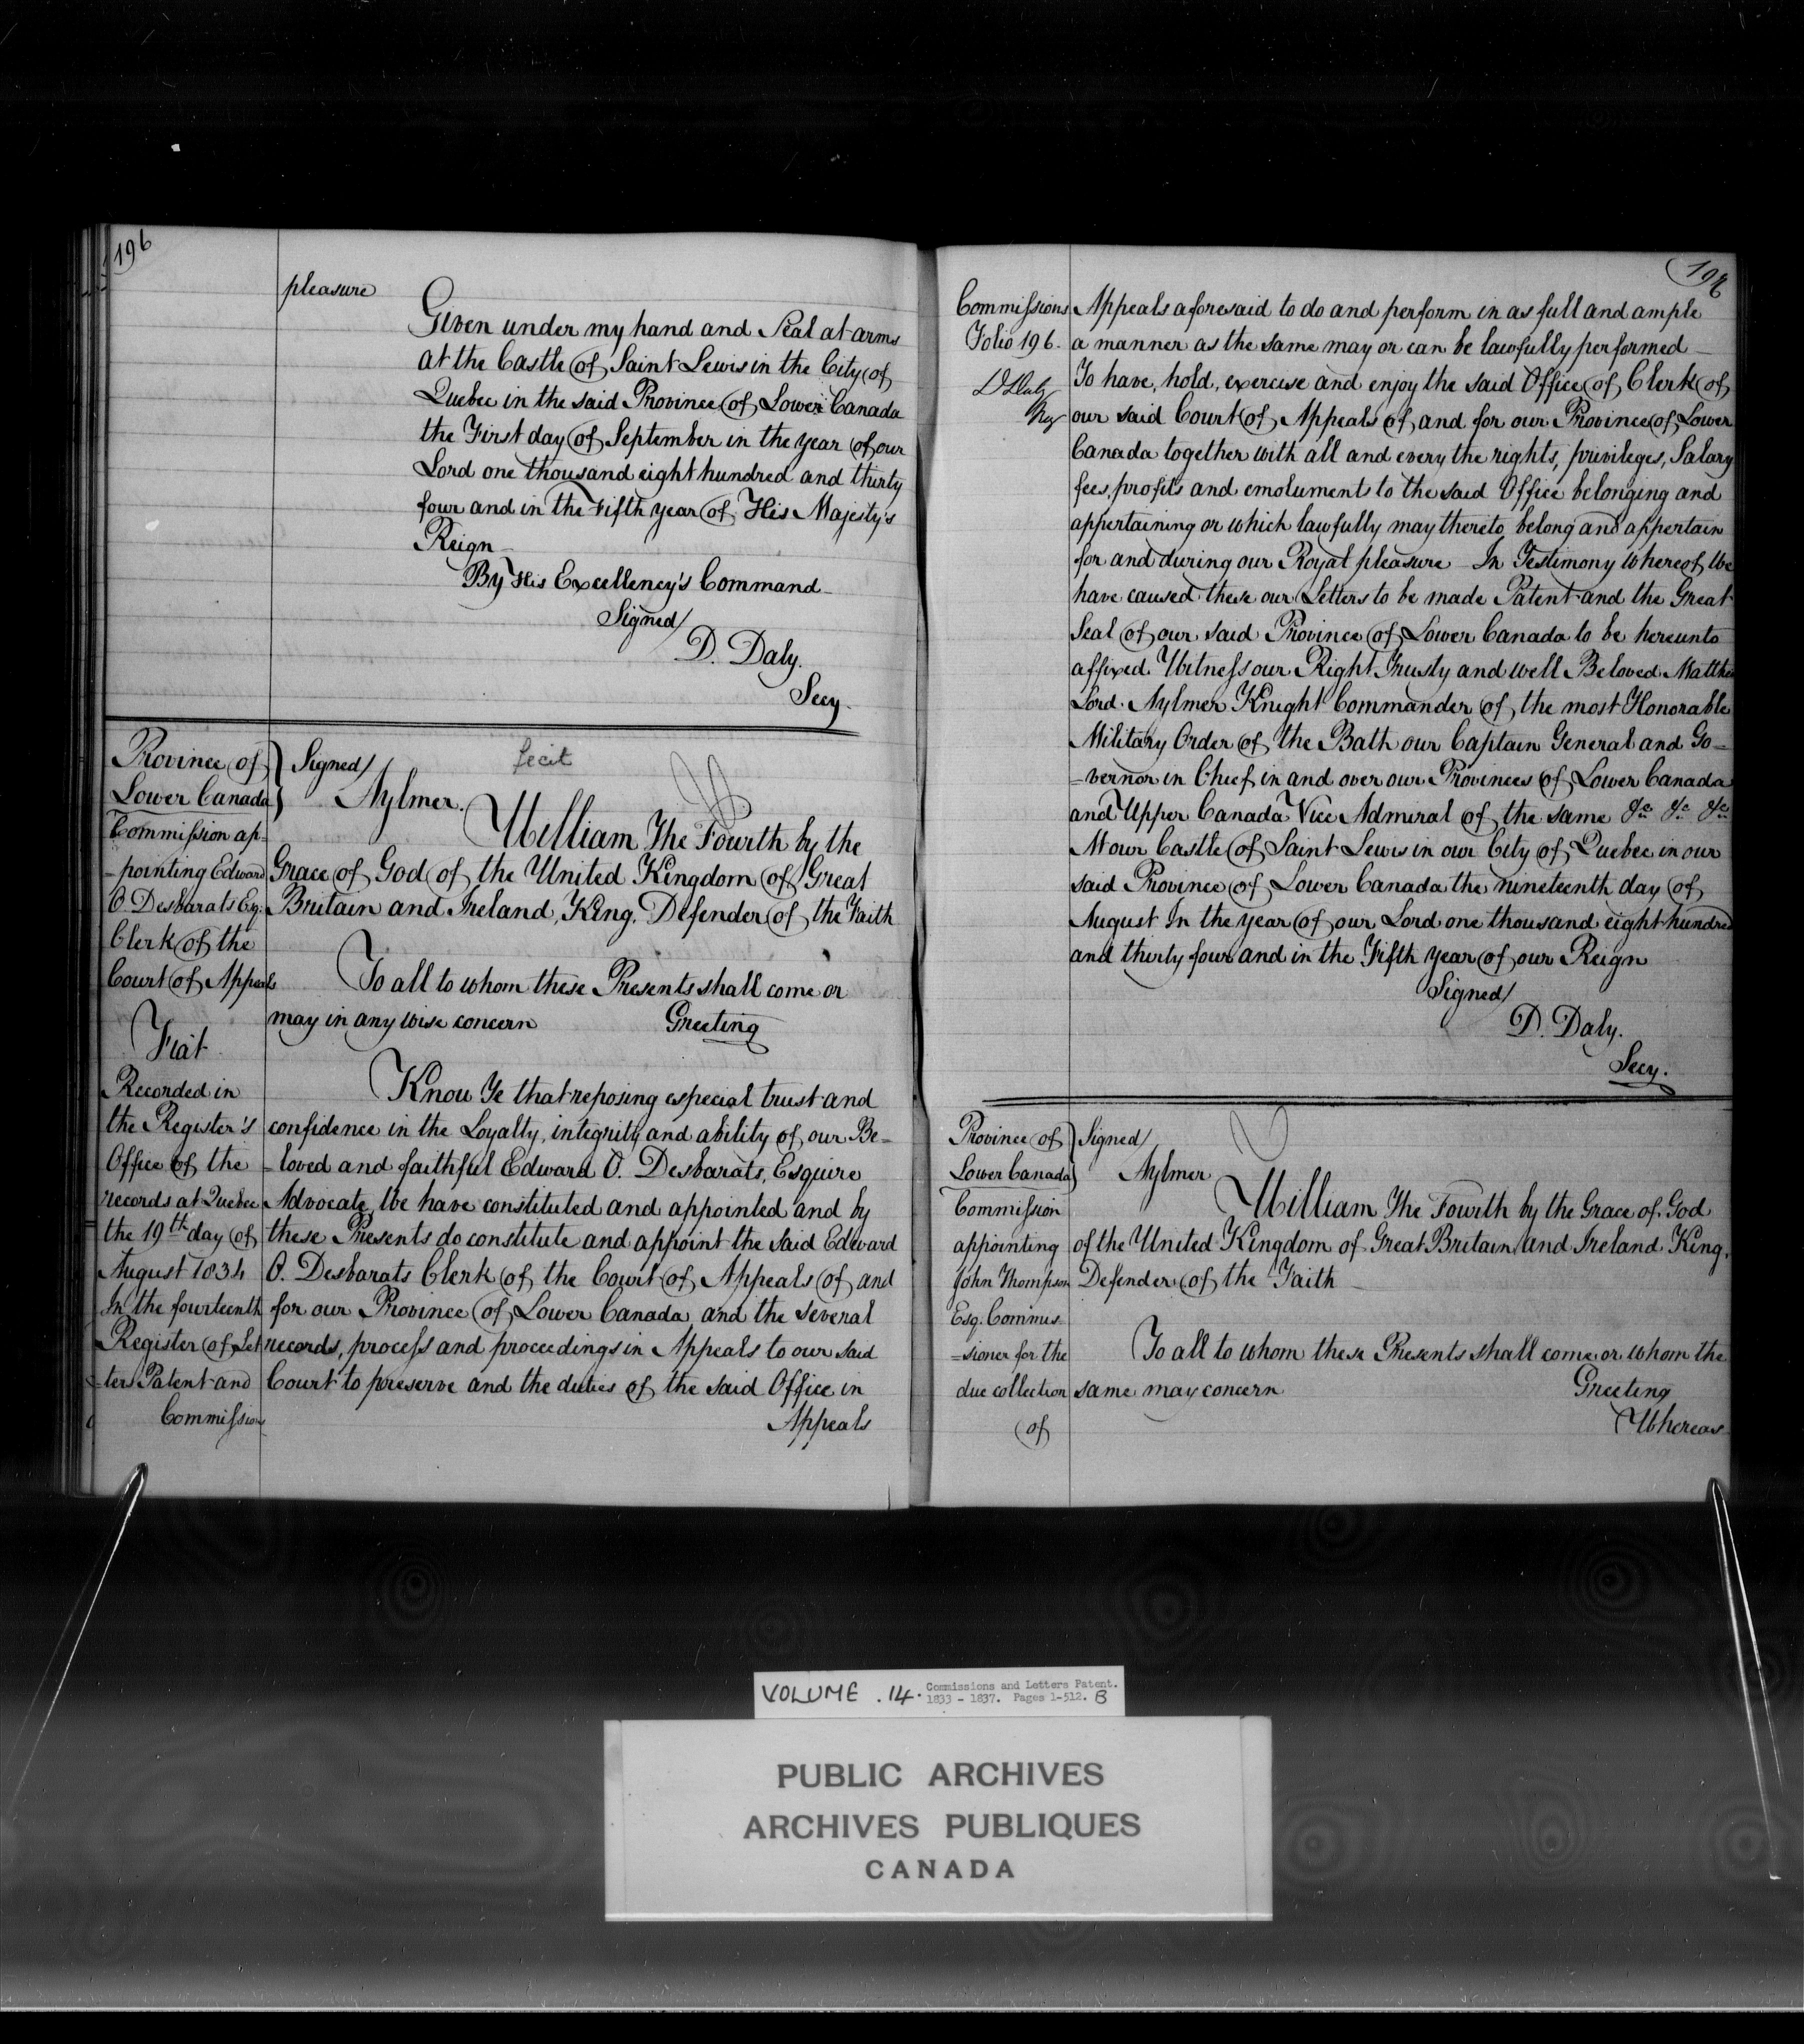 196
pleasure
Given under my hand and Seal at arms
at the Castle of Saint Lewis in the City of
Quebec in the said Province of Lower Canada
the First day of September in the year of our
Lord one thousand eight hundred and thirty
four and in the Fifth year of His Majesty's
Reign
By His Excellency's Command
Signed/
D. Daly.
Secy.
Province of
Lower Canada
Commission ap-
-pointing Edward
O. Desbarats Esq.
Clerk of the
Court of Appeals
Fiat
Recorded in
the Register's
Office of the
records at Quebec
the 19th day of
August 1834
In the fourteenth
Register of Let
-ters Patent and
Commissions
Signed/ fecit
Aylmer.
William The Fourth by the
Grace of God of the United Kingdom of Great
Britain and Ireland, King, Defender of the Faith
To all to whom these Presents shall come or
may in any wise concern Greeting
Know Ye that reposing especial trust and
confidence in the Loyalty, integrity and ability of our Be-
-loved and faithful Edward O. Desbarats, Esquire
Advocate, We have constituted and appointed and by
these Presents do constitute and appoint the said Edward
O. Desbarats Clerk of the Court of Appeals of and
for our Province of Lower Canada and the several
records, process and proceedings in Appeals to our said
Court to preserve and the duties of the said Office in
Appeals
Commissions
Folio 196.
D Daly
Reg
Appeals aforesaid to do and perform in as full and ample
a manner as the same may or can be lawfully performed
To have, hold, exercise and enjoy the said Office of Clerk of
our said Court of Appeals of and for our Province of Lower
Canada together with all and every the rights, privileges, Salary
fees, profits and emoluments to the said Office belonging and
appertaining or which lawfully may thereto belong and appertain
for and during our Royal pleasure In Testimony Whereof We
have caused these our Letters to be made Patent and the Great
Seal of our said Province of Lower Canada to be hereunto
affixed. Witness our Right Trusty and well Beloved Matthew
Lord Aylmer Knight Commander of the most Honorable
Military Order of the Bath our Captain General and Go-
-vernor in Chief in and over our Provinces of Lower Canada
and Upper Canada Vice Admiral of the same &c &c &c
At our Castle of Saint Lewis in our City of Quebec in our
said Province of Lower Canada the nineteenth day of
August In the year of our Lord one thousand eight hundred
and thirty four and in the Fifth year of our Reign
Signed/
D. Daly.
Secy.
Province of
Lower Canada
Commission
appointing
John Thompson
Esq. Commis-
-sioner for the
due collection
of
Signed/
Aylmer
William The Fourth by the Grace of God
of the United Kingdom of Great Britain and Ireland King,
Defender of the Faith
To all to whom these Presents shall come or whom the
same may concern Greeting
Whereas
VOLUME .14. Commissions and Letters Patent.
1833 - 1837. Pages 1-512. B
PUBLIC ARCHIVES
ARCHIVES PUBLIQUES
CANADA